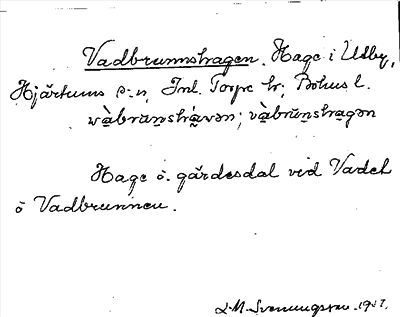 Vadbrunnshagen. Hage i Utby,
Hjärtums s:n, Inl. Torpe hr, Bohus l.
wàbrunshávən; vàbrunshagən
Hage o. gärdesdal vid Vadet
o Vadbrunnen.
S. M. Svenungsson. 1917.